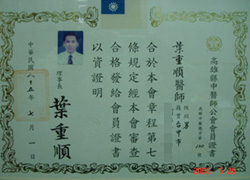 高雄縣中醫師公會會員證書
葉重順醫師
性別男
合於本會章程第七
條規定經本會審查
合格發給會員證書
以資證明
理事長
葉重順
中華民國八十五年七月一日